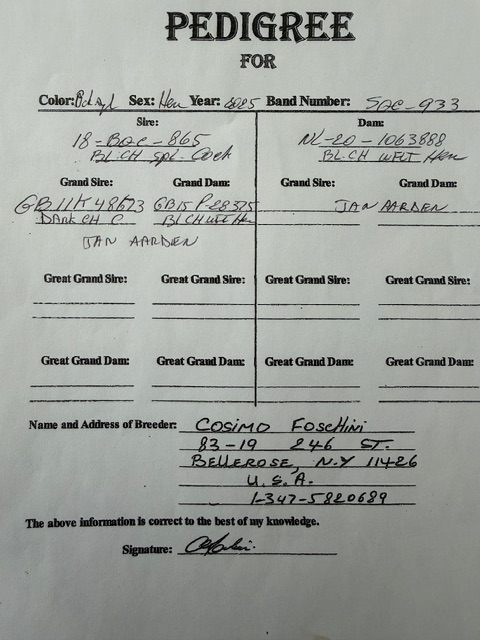 PEDIGREE
FOR
Color: Sex: Hen Year: 2025 Band Number: SQC-933
Sire: Dam:
18-BQC-865 NL-20-1063888
BL.CH SPL. Cock BL.CH WFLT Hen
Grand Sire: Grand Dam: Grand Sire: Grand Dam:
GB11K48673 GB15P28375 JAN AARDEN
DARK CH C BL CH WFLT Hen
JAN AARDEN
Great Grand Sire: Great Grand Dam: Great Grand Sire: Great Grand Dam:
Great Grand Dam: Great Grand Dam: Great Grand Dam: Great Grand Dam:
Name and Address of Breeder: COSIMO FOSCHINI
83-19 246 ST.
BELLEROSE, N.Y 11426
U.S.A.
1-347-5820689
The above information is correct to the best of my knowledge.
Signature: